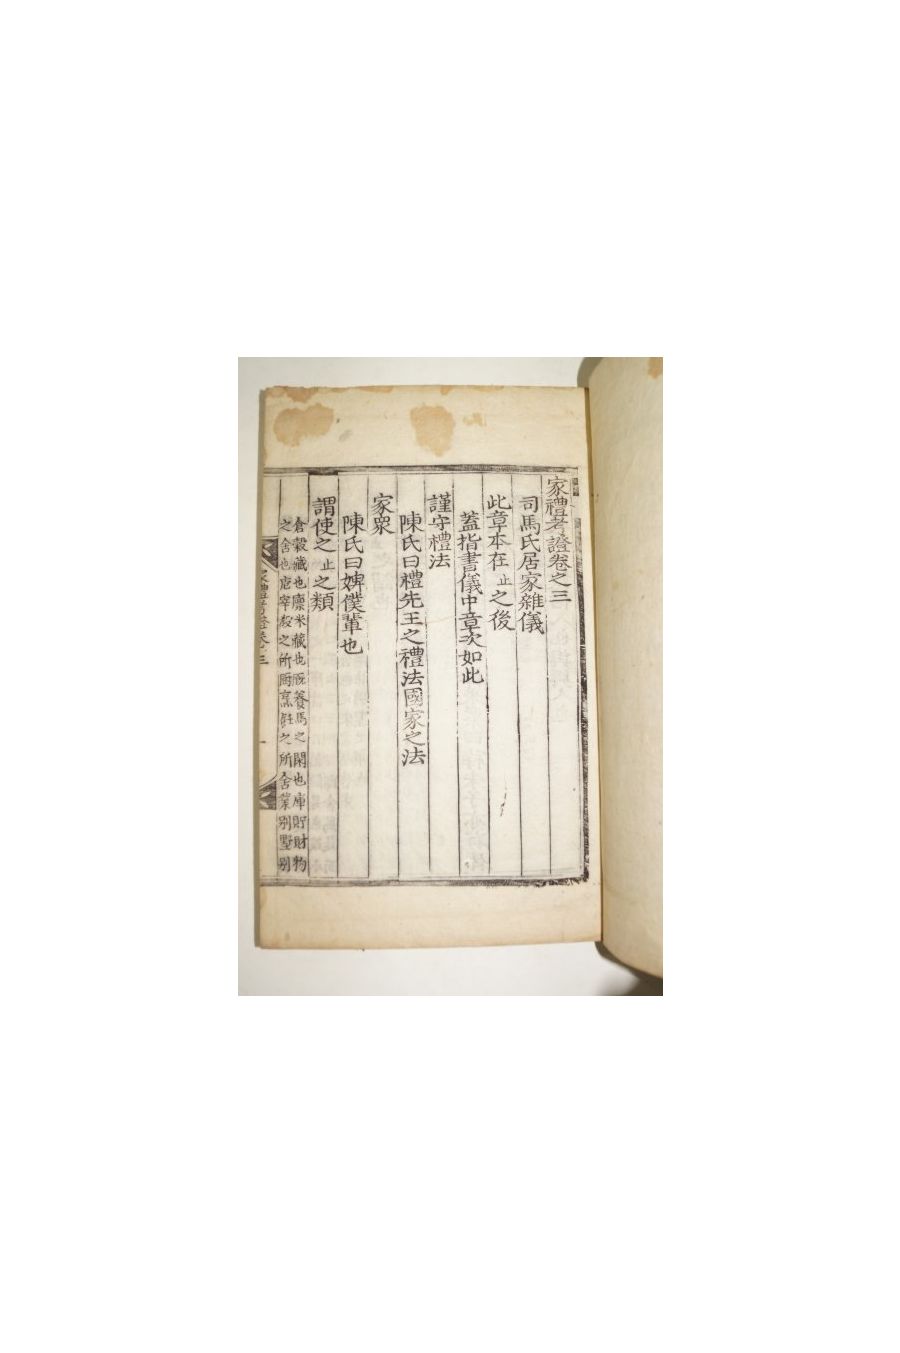 家禮考證卷之三
司馬氏居家雜儀
此章本在止之後
蓋指書儀中章次如此
謹守禮法
陳氏曰禮先王之禮法國家之法
家眾
陳氏曰婢僕輩也
謂使之止之類
倉穀藏也廩米藏也廐養馬之閑也庫貯財物
之舍也庖宰殺之所厨烹飪之所舍業別墅別